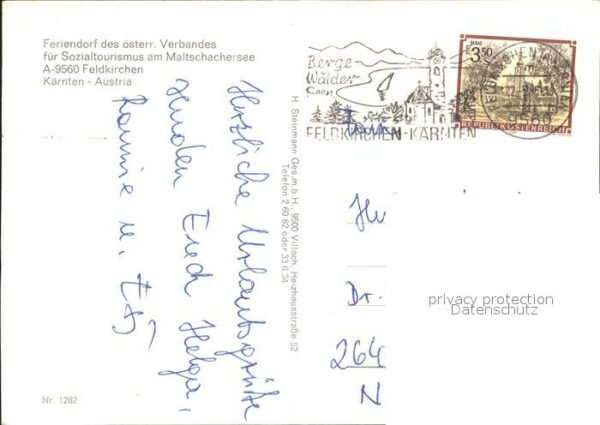 Feriendorf des österr. Verbandes
für Sozialtourismus am Maltschachersee
A-9560 Feldkirchen
Kärnten - Austria
Herzliche Urlaubsgrüße
senden Euch Helga,
Rannie u.
H. Steinmann Ges.m.b.H., 9500 Villach, Heizhausstraße 52
Telefon 2 60 62 oder 33 6 34
Nr. 1282
Berge
Wälder
Seen
FELDKIRCHEN-KÄRNTEN
S 3.50
REPUBLIK ÖSTERREICH
9560
Dr.
264
N
privacy protection
Datenschutz